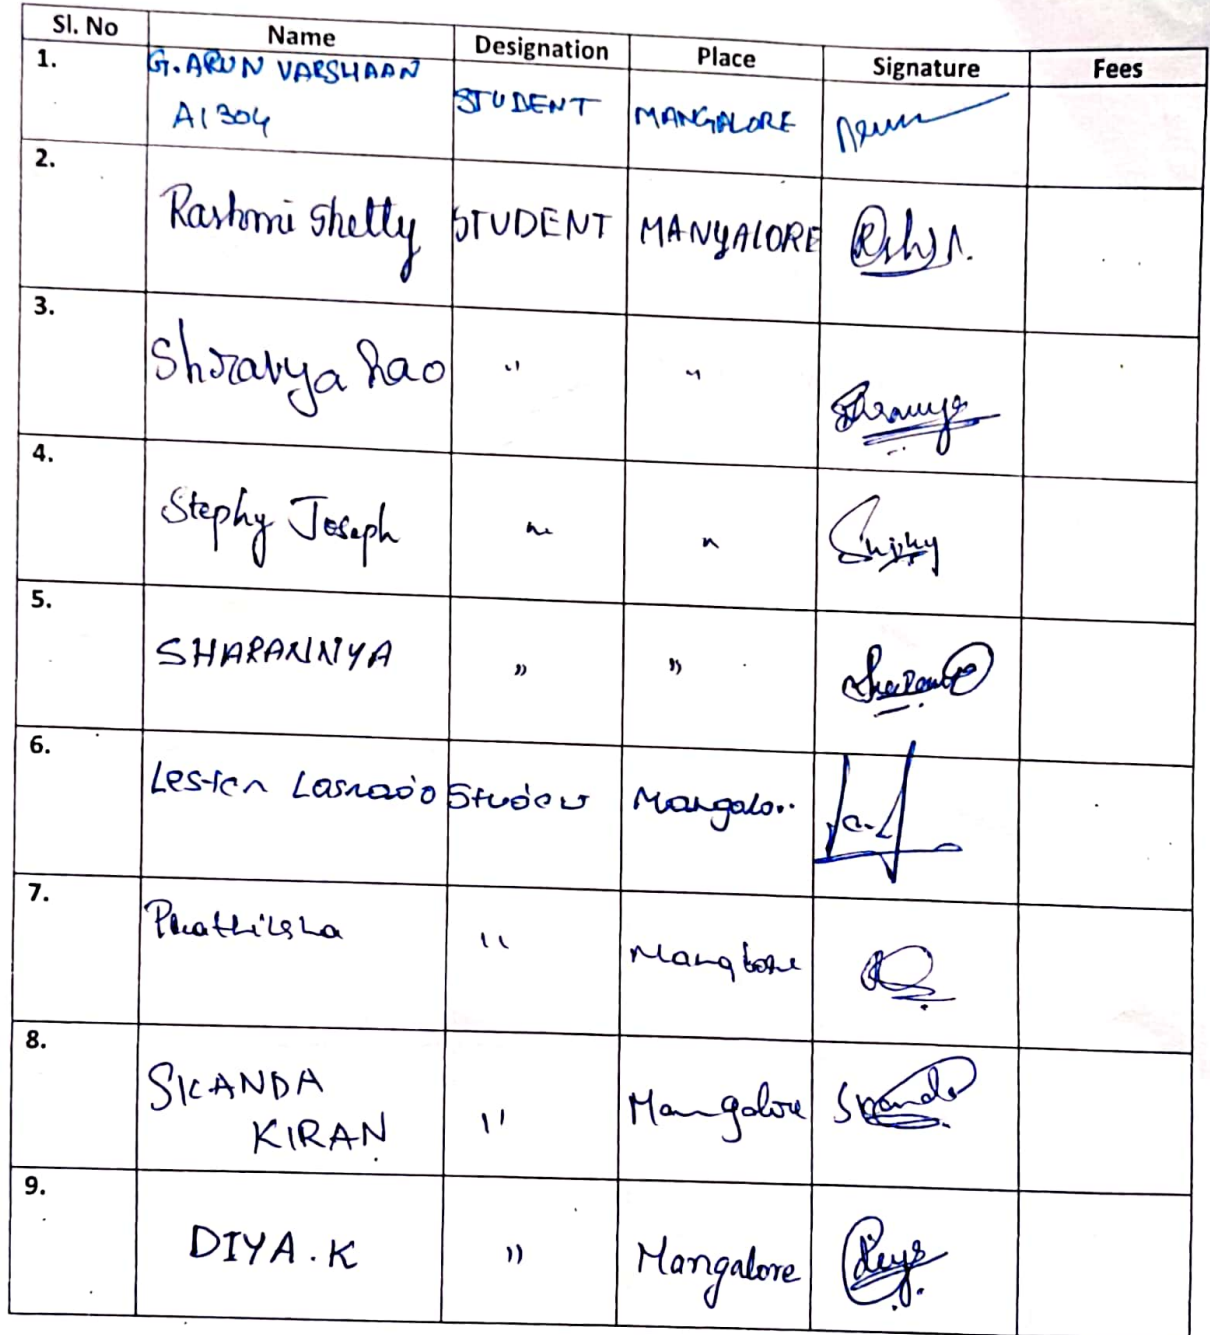 Sl. No Name Designation Place Signature Fees
1. G. ARUN VARSHAAN STUDENT MANGALORE
A1304
2. Rashmi Shetty STUDENT MANGALORE
3. Shravya Rao " "
4. Stephy Joseph " "
5. SHARANNYA " "
6. Lester Lasrado Student Mangalore
7. " Mangalore
8. SKANDA " Mangalore Skanda
KIRAN
9. DIYA. K " Mangalore Diya